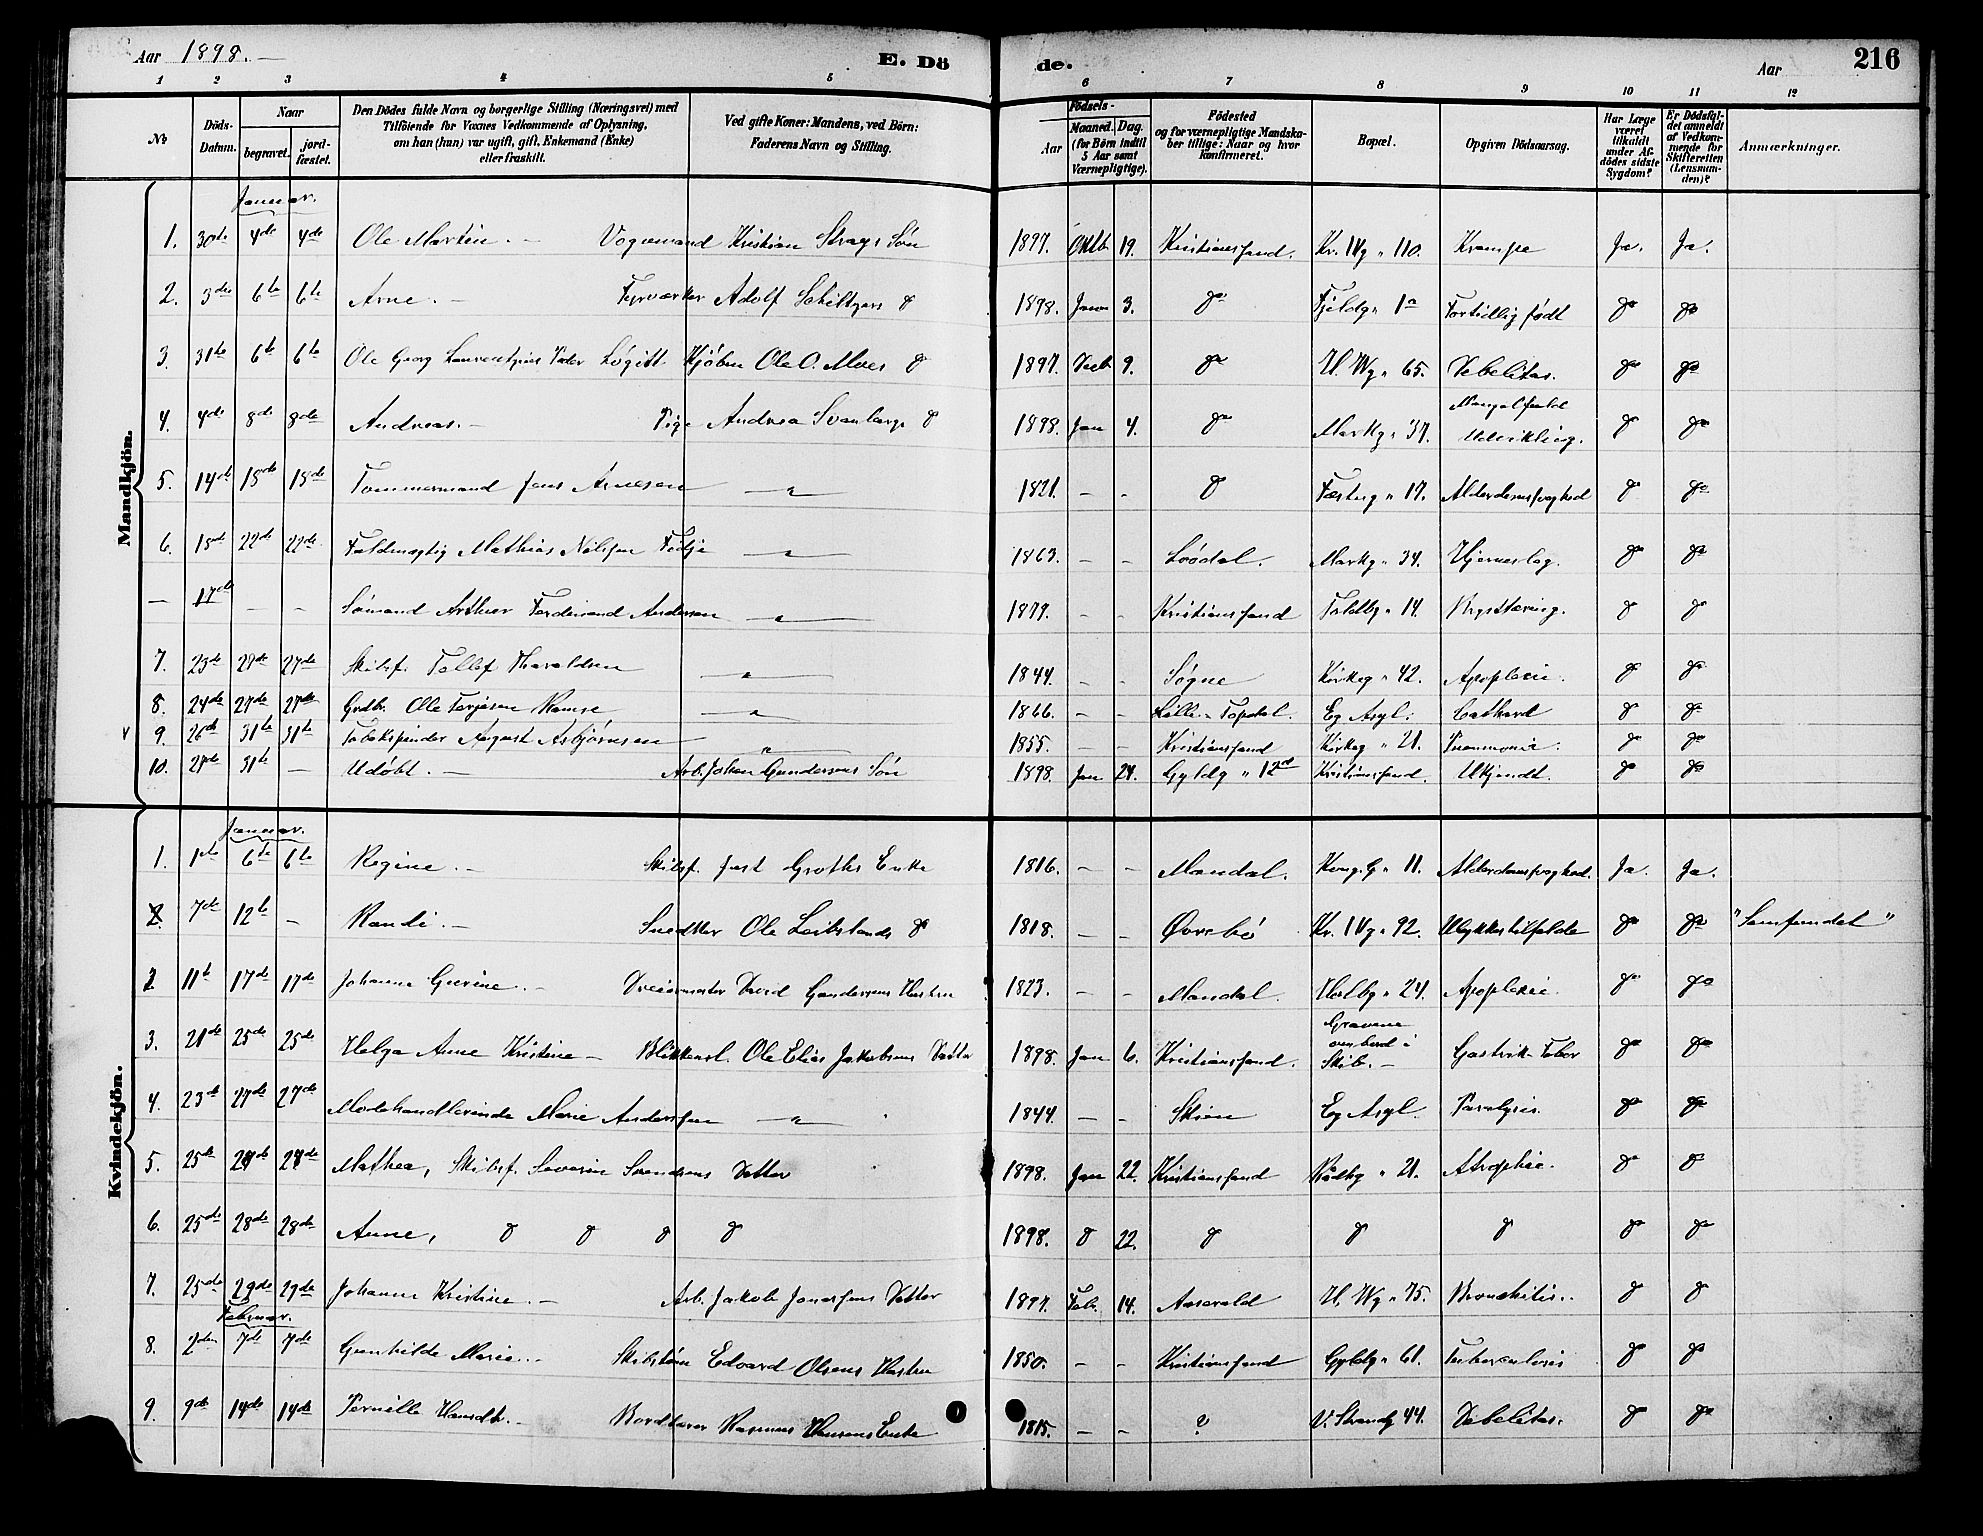 Aar 1898. E. Dö de. Aar 216
1 2 3 4 5 6 7 8 9 10 11 12
No Döds-Datum. Naar begravet. jordfæstet. Den Dödes fulde Navn og borgerlige Stilling (Næringsvei) med Tilföiende for Voxnes Vedkommende af Oplysning, om han (hun) var ugift, gift, Enkemand (Enke) eller fraskilt. Ved gifte Koner: Mandens, ved Börn: Faderens Navn og Stilling. Födsels- Aar Maaned. Dag. (for Börn indtil 5 Aar samt Værnepligtige). Födested og for værnepligtige Mandskaber tillige: Naar og hvor konfirmeret. Bopæl. Opgiven Dödsaarsag. Har Læge været tilkaldt under Afdödes sidste Sygdom? Er Dödsfaldet anmeldt af Vedkommende for Skifteretten (Lensmanden)? Anmærkninger.
Mandkjön.
Januar.
1. 30te 4de 4de Ole Martin. - Vognmand Kristian Strays Søn 1897. Oktb 19. Kristianssand. Kr. IVg " 110. Krampe Ja. Ja.
2. 3die 6te 6te Arne. - Fyrværker Adolf 1898. Janu 3. do Fjeldg " 1a Fortidlig født do do
3. 31te 6te 6te Ole Georg Kjøbm Ole O. Moes do 1897. Decb 9. do H. Wg " 65. Debilitas. do do
4. 4de 8de 8de Andreas. - Pige Andrea do 1898. Jan 4. do Markg " 37. Mangelfuld Udvikling. do do
5. 14de 18de 18de Tømmermand Jens Arnesen " 1821. - - do Fæstng " 17. Alderdomssvaghed do do
6. 18de 22de 22de Fuldmægtig Mathias Nilssen Fedje " 1863. - - Markg " 34. Hjerneslag. do do
- 17de - - Sømand Arthur Ferdinand Andersen " 1877. - - Kristianssand Toldbg " 14. Brysttæring. do do
7. 23de 27de Skibsf. Tollef Haraldsen " 1844. - - Søgne Kirkeg " 42. Apoplexie. do do
8. 24de 27de 27de Grdbr. Ole Terjesen " 1866. - - Lille - Topdal. Eg Asyl. do do
9. 26de 31te 31te Tobakspinder August Asbjørnsen " 1855. - - Kristianssand Kirkeg " 21. Pneumonie. do do
10. 31te - Udøbt. - Arb. Johan Gundersens Søn 1898 Jan 24. Gyldg " 12 Kristianssand. Ukjendt. do do
Kvindekjön.
Januar.
1. 1ste 6te 6te Regine. - Skibsf. Just Groths Enke 1816. - - Mandal. Kong. G " 11. Alderdomssvaghed. Ja. Ja.
2. 7de 12te - Randi. - Snedker Ole do 1818. - - Øvrebø Kr. IVg " 92. Ulykkestilfælde do do "Samfundet"
2 11te 17de 17de Johanne Gurine. - Dreiermester David Gundersens Hustru 1823. - - Mandal. Holbg " 24. Apoplexie. do do
3. 21de 25de 25de Helga Anne Kristine - Blikkensl. Ole Elias Jakobsens Datter 1898. Jan 6. Kristianssand. Gravene ombord i Skib. - Gastrik-Feber do do
4. 23de 27de 27de Modehandlerinde Marie Anderssen " 1844 - - Skien Eg Asyl. Paralysis. do do
5. 25de 28de 28de Mathea, Skibsf. Severin Svendsens Datter 1898. Jan 22. Kristianssand Rådhg " 21. Atrophie. do do
6. 25de 28de 28de Anne, do do do do 1898. do 22. do do do do do
7. 25de 29de 29de Johanne Kristine. - Arb. Jakob Jonassens Datter 1897. Febr. 14. H. Wg " 75. Bronchitis. do do
Februar.
8. 2den 7de 7de Gunhilde Marie. - Skibstøm Edvard Olsens Hustru 1850. - - Kristianssand Gyldg " 61. Tuberculosis do do
9. 9de 14de 14de Pernille - Rasmus Hansens Enke 1815. - - ? V. Strandg 44. Debilitas. do do